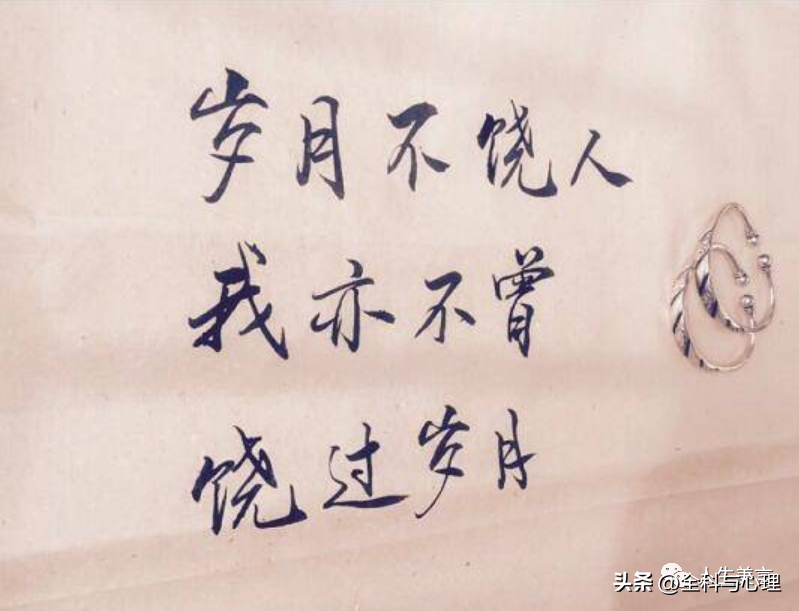 岁月不饶人
我亦不曾
饶过岁月
人生兼言
头条 @全科与心理